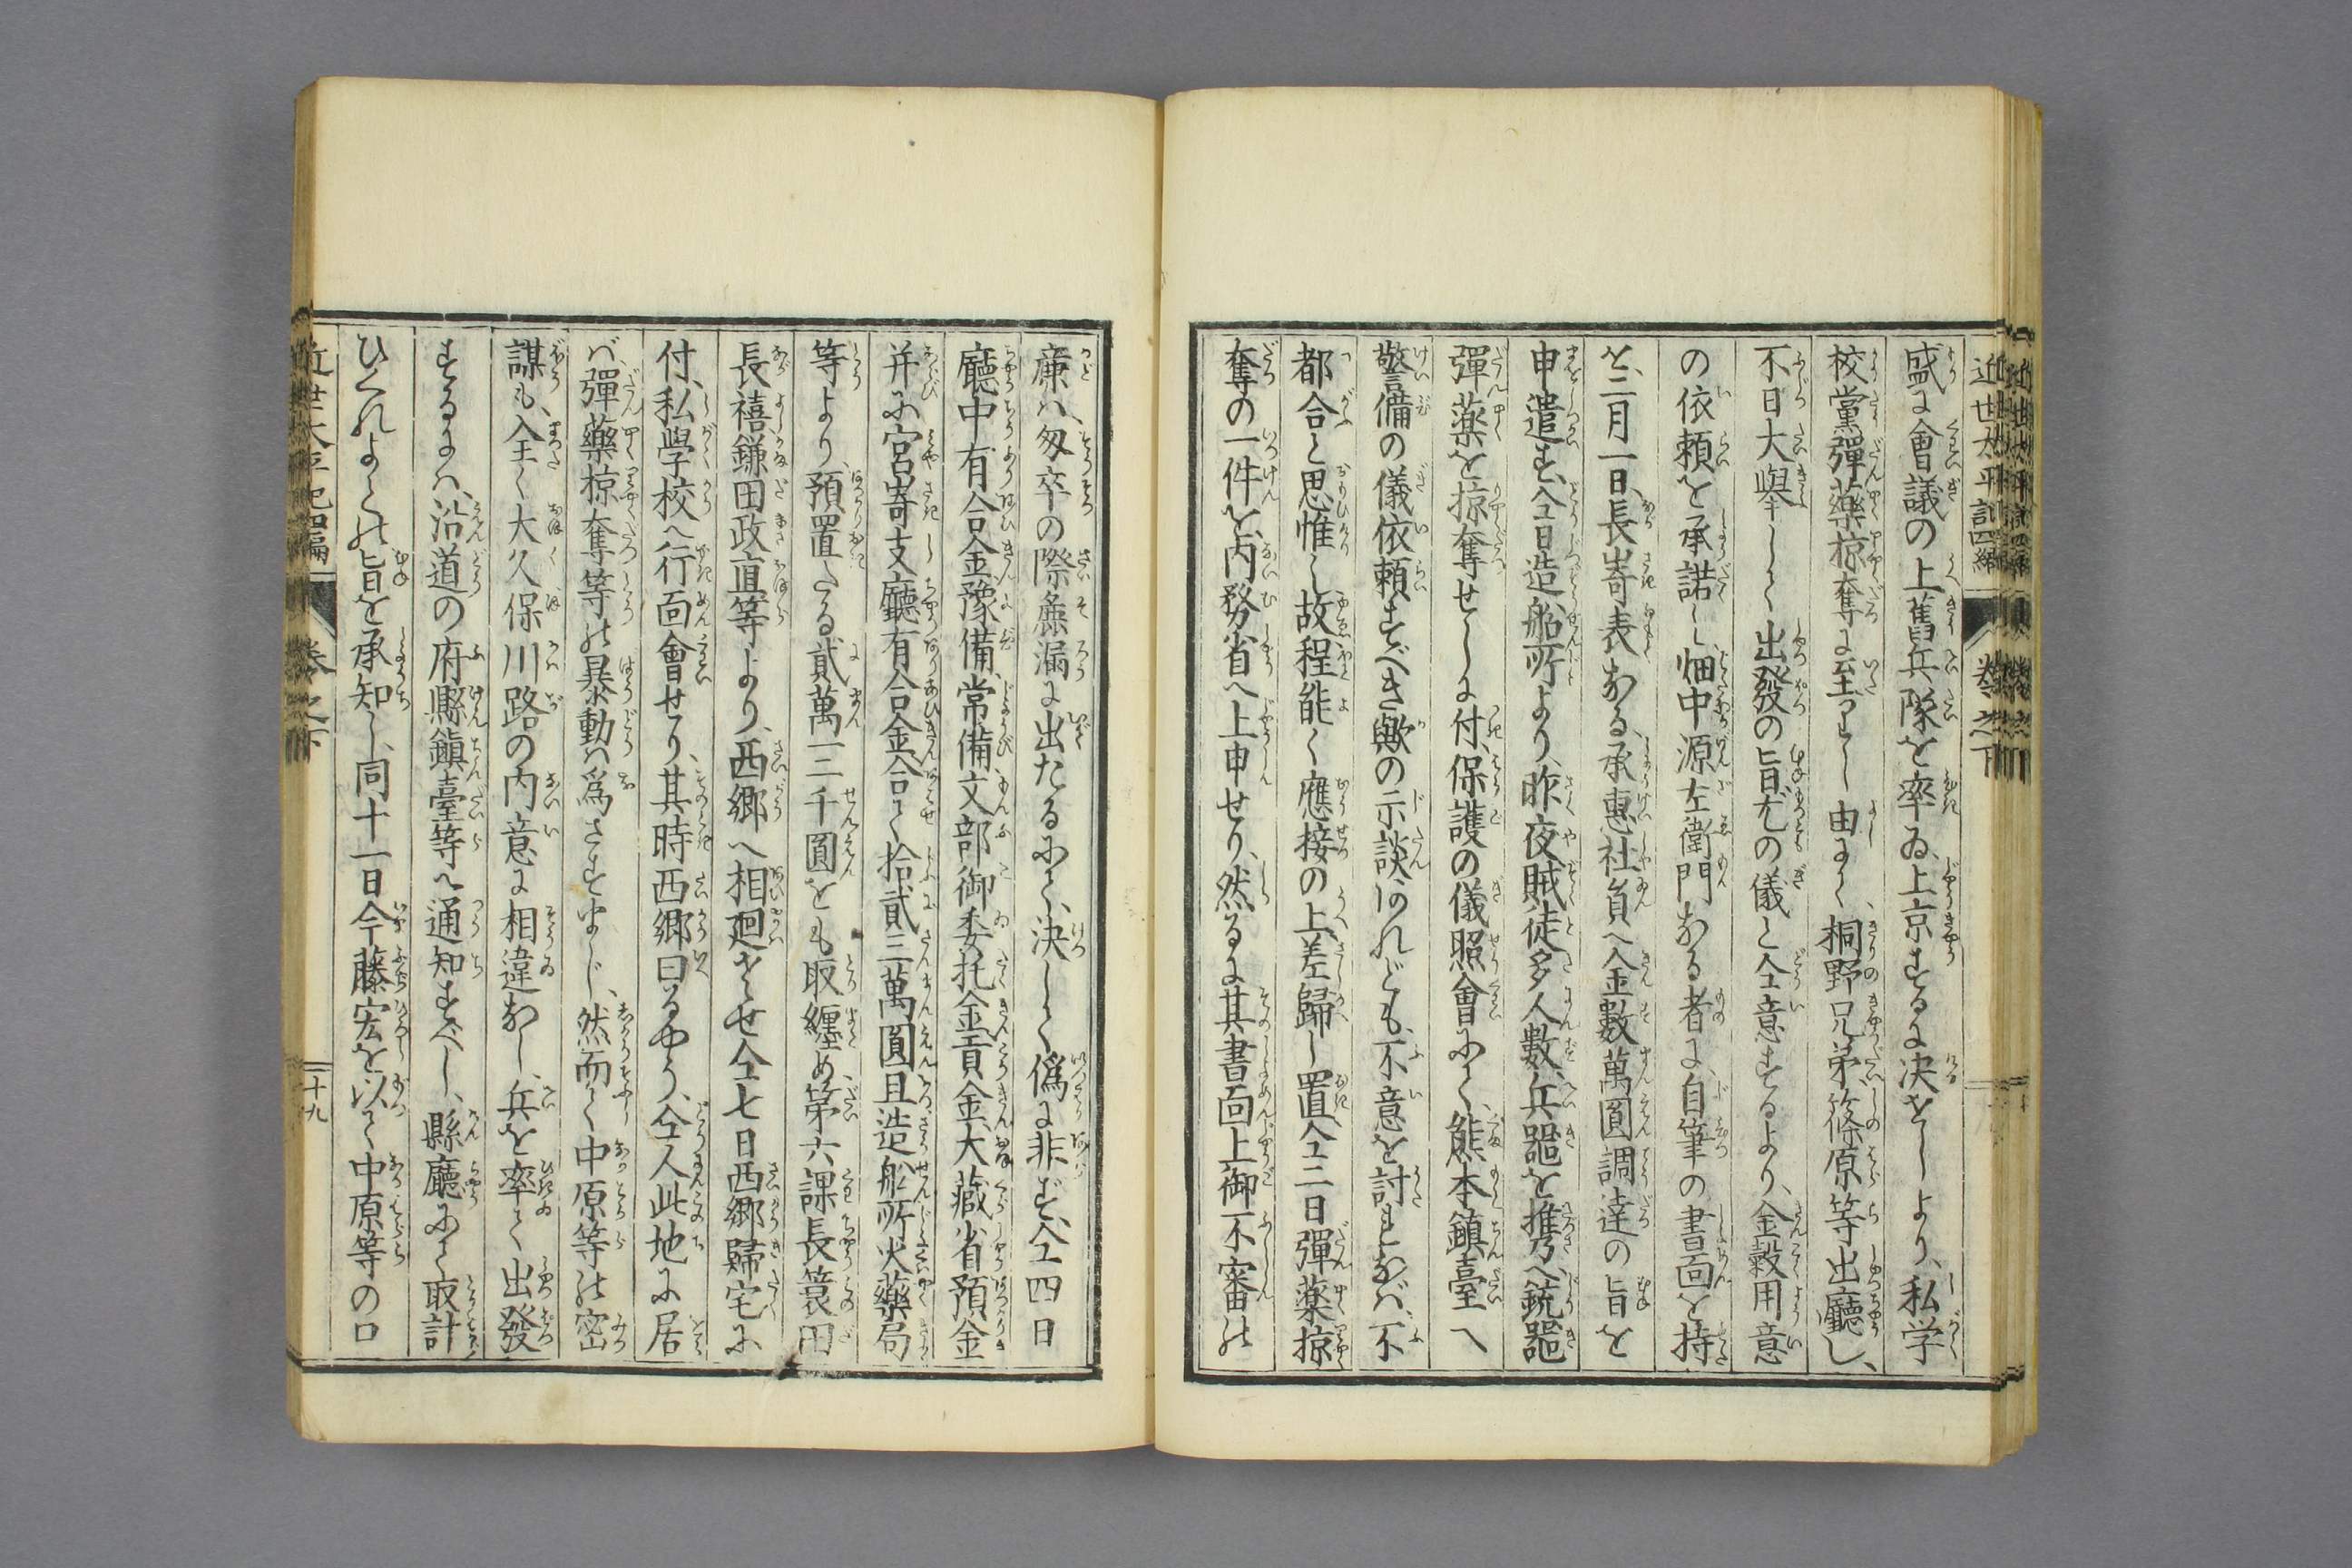 近世太平記四編 卷之下
盛に會議の上舊兵隊を率ゐ、上京するに決せしより、私学
校黨彈藥掠奪に至りし由にて、桐野兄弟、篠原等出廳し、
不日大擧して出發の旨尤の儀と仝意するより、金穀用意
の依頼を承諾し、畑中源左衛門なる者に自筆の書面を持
を、二月一日、長嵜表なる承惠社員へ金數萬圓調達の旨を
申遣す、仝日造船所より、昨夜賊徒多人數、兵噐を携へ、銃噐
彈薬を掠奪せしに付、保護の儀照會にて、熊本鎮臺へ
警備の儀依頼すべき歟の示談あれども、不意を討るれば、不
都合と思惟し、故程能く應接の上、差歸し置、仝二日彈薬掠
奪の一件を、内務省へ上申せり、然るに其書面上御不審の
廉ハ、匆卒の際麁漏に出たるにて、決して僞に非ず、仝四日
廳中有合金豫備、常備文部御委托金貢金、大藏省預金
并に宮嵜支廳有合金合て拾貳三萬圓且造船所火藥局
等より、預置たる貳萬三千圓をも取纏め、第六課長簑田
長禧鎌田政直等より、西郷へ相廻させ仝七日西郷歸宅に
付、私學校へ行面會せり、其時西郷曰るやう、仝人此地に居
バ、彈藥掠奪等の暴動ハ爲さすまじ、然而て中原等の密
謀も、全く大久保川路の内意に相違なし、兵を率て出發
するにハ、沿道の府縣鎮臺等へ通知すべし、縣廳にて取計
ひくれよとの旨を承知し、同十一日今藤宏を以て中原等の口
近世太平記四編 卷之下 十九